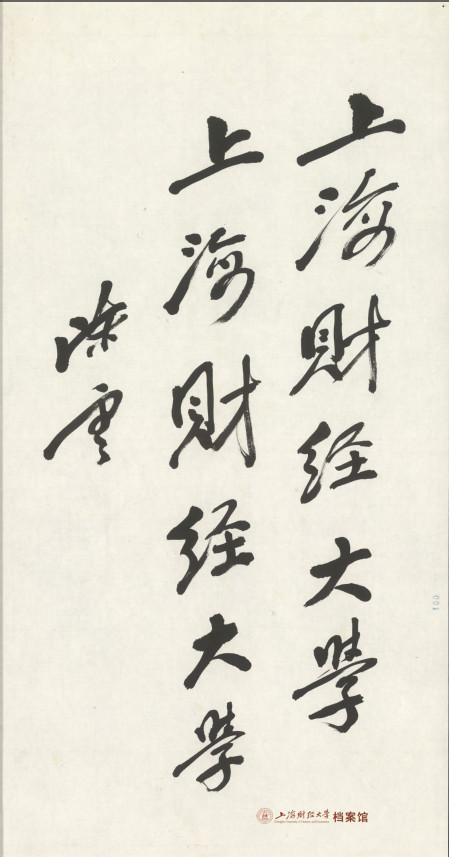 上海财经大学
上海财经大学
陈云
100
上海财经大学 档案馆